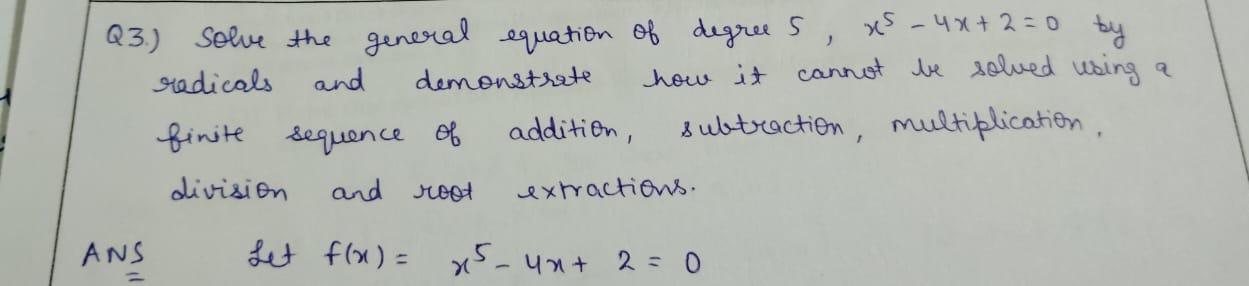 Q3.) Solve the general equation of degree 5, x⁵ - 4x + 2 = 0 by
radicals and demonstrate how it cannot be solved using a
finite sequence of addition, subtraction, multiplication,
division and root extractions.
ANS Let f(x) = x⁵ - 4x + 2 = 0